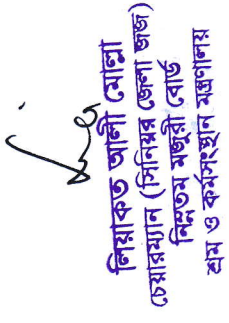 লিয়াকত আলী মোল্লা
চেয়ারম্যান (সিনিয়র জেলা জজ)
নিম্নতম মজুরী বোর্ড
শ্রম ও কর্মসংস্থান মন্ত্রণালয়